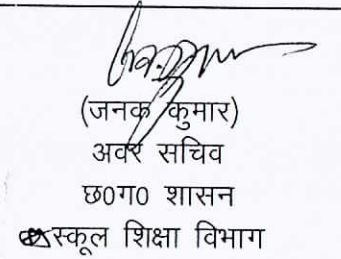 (जनक कुमार)
अवर सचिव
छ0ग0 शासन
स्कूल शिक्षा विभाग